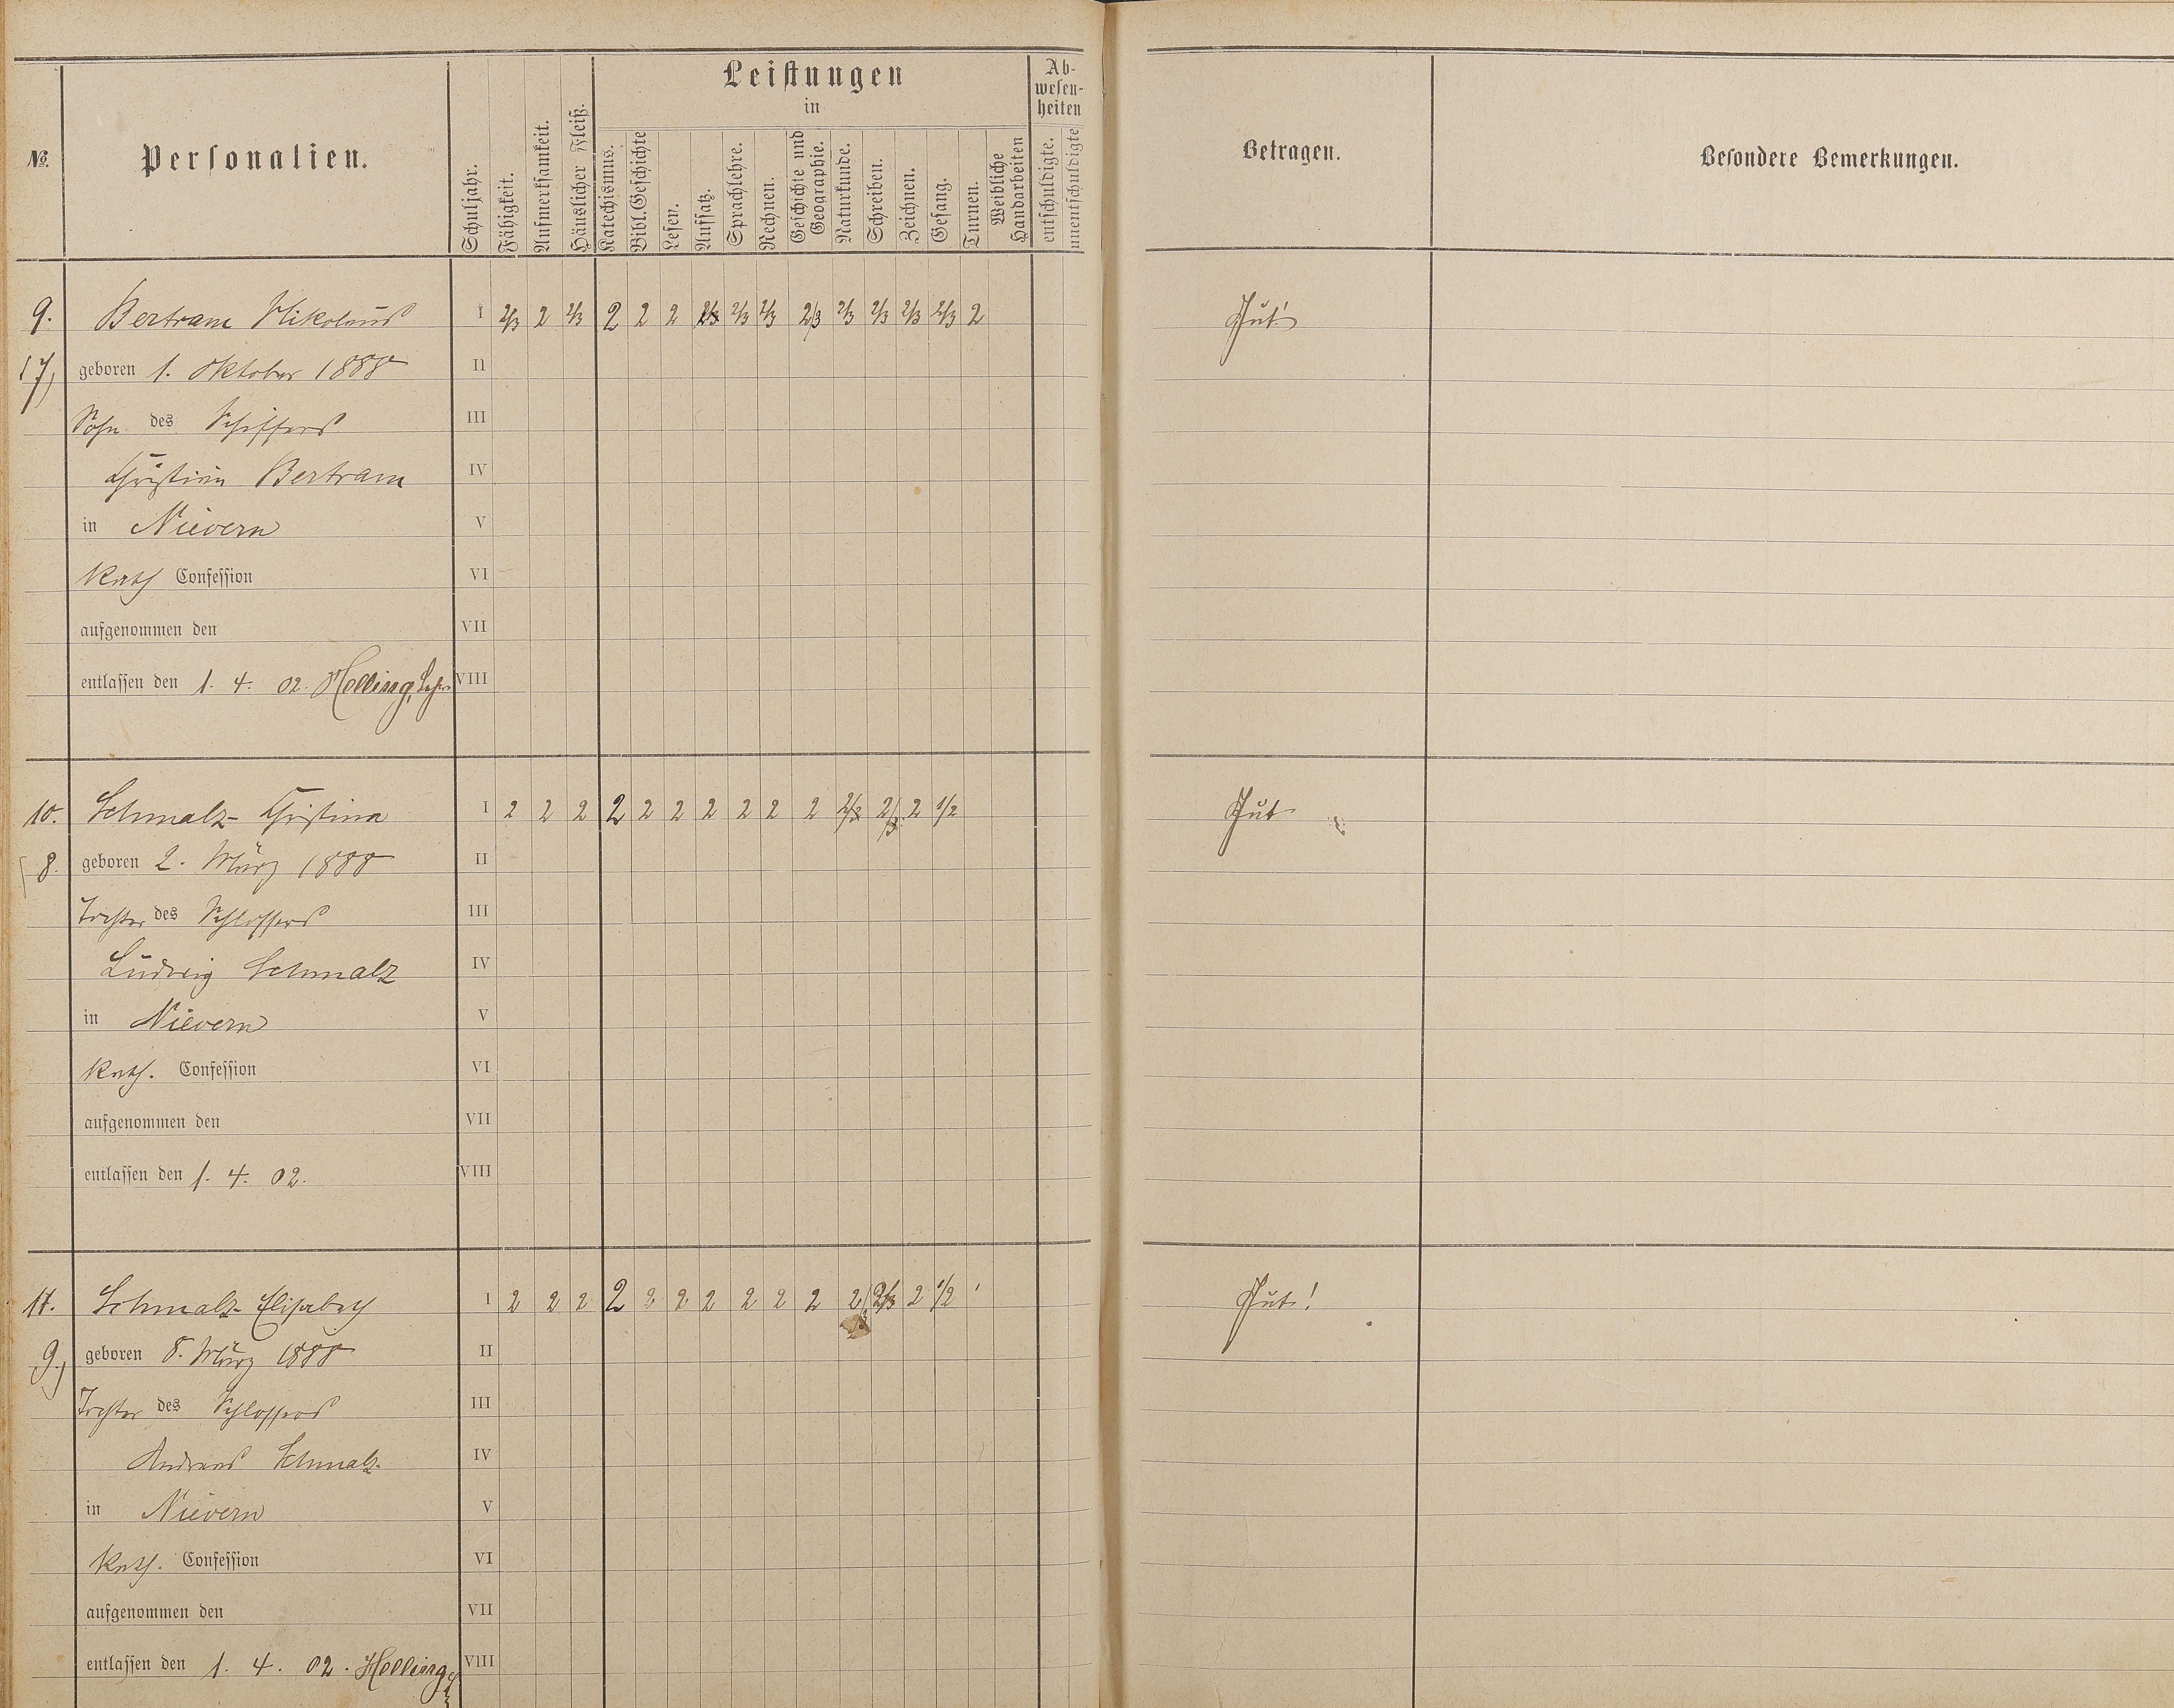 №.
Personalien.
Schuljahr.
Fähigkeit.
Aufmerksamkeit.
Häuslicher Fleiß.
Leistungen
in
Katechismus.
Bibl. Geschichte
Lesen.
Aufsatz.
Sprachlehre.
Rechnen.
Geschichte und
Geographie.
Naturkunde.
Schreiben.
Zeichnen.
Gesang.
Turnen.
Weibliche
Handarbeiten
Ab-
wesen-
heiten
entschuldigte.
unentschuldigte
Betragen.
Besondere Bemerkungen.
9. Bertram Nikolaus I 2/3 2 2/3 2 2 2 2/3 2/3 2/3 2/3 2/3 2/3 2/3 2/3 2 Gut!
17) geboren 1. Oktober 1888 II
Sohn des Schiffers III
Christian Bertram IV
in Nievern V
Kath Confession VI
aufgenommen den VII
entlassen den 1. 4. 02. Helling, Lehrer VIII
10. Schmalz Christina I 2 2 2 2 2 2 2 2 2 2 2/3 2/3 2 1/2 Gut
8. geboren 2. März 1888 II
Tochter des Schlossers III
Ludwig Schmalz IV
in Nievern V
Kath. Confession VI
aufgenommen den VII
entlassen den 1. 4. 02. VIII
11. Schmalz Elisabeth I 2 2 2 2 2 2 2 2 2 2 2/3 2/3 2 1/2 Gut!
9.) geboren 8. März 1888 II
Tochter des Schlossers III
Andreas Schmalz IV
in Nievern V
Kath. Confession VI
aufgenommen den VII
entlassen den 1. 4. 02. Helling VIII